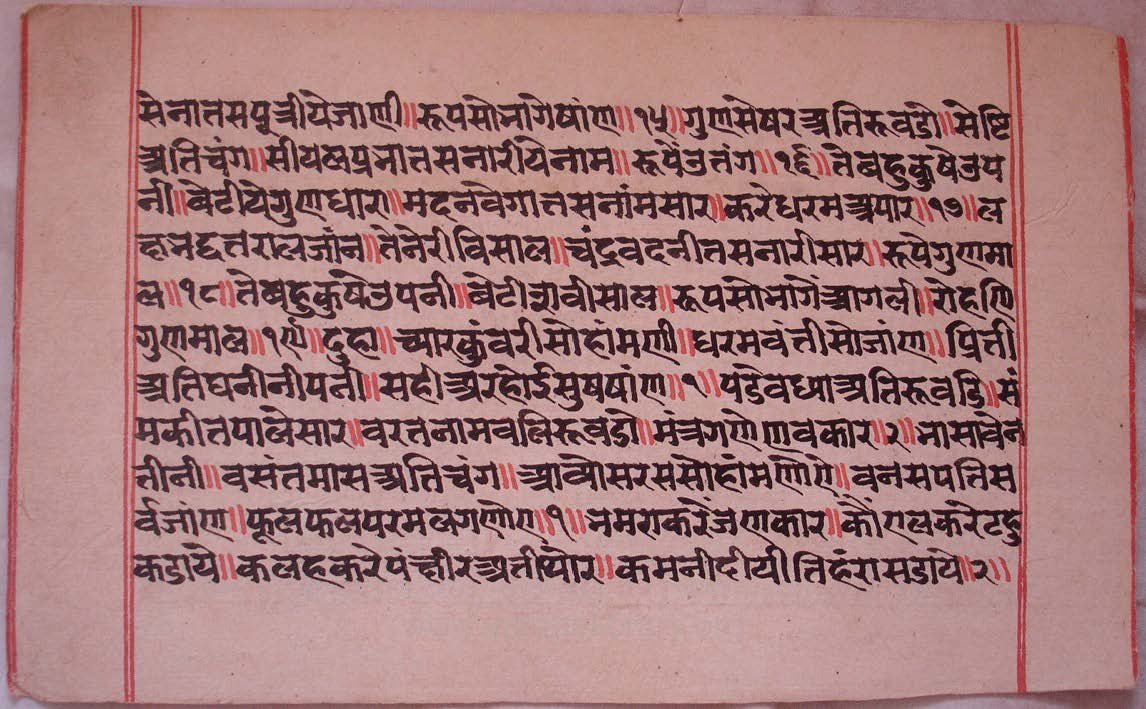 सेनातसपूत्रीयेजाणी॥रूपसोभागेषांण॥१५॥गुणसेषरअतिरूवडो॥सेष्टि
अतिचंग॥सीयलप्रभातसनारीयेनाम॥रूपेंउतंग॥१६॥तेबहुकुषेउप
नी॥बेटीयेगुणधारा॥मदनवेगातसनांमसार॥करेधरमअपार॥१७॥ल
चंद्रवदनीतसनारीसार॥रूपेगुणमा
ल॥१८॥तेबहुकुषेउपनी॥बेटीभावीसाल॥रूपसोभागेंआगली॥रोहणि
गुणमाल॥१९॥दुहा॥च्यारकुंवरीसोहांमणी॥धरमवंतीसोजांण॥प्रिती
अतिघनीनीपनी॥सहीअरहोईसुषषांण॥१॥पडेवध्याअतिरूवडि॥सं
मकीतपालेसार॥वरतनामवलिरूवडो॥मंत्रगणेणवकार॥२॥भासावेन
तीनी॥वसंतमासअतिचंग॥आव्योसरससोहांमणोए॥वनसपतिस
र्वजांण॥फूलफलपरमलगणोए॥१॥भमराकरेंजणकार॥कोंएलकरेटहु
कडाये॥कलहकरेपंच्छीरअतीयोर॥कमनीदीयीतिहंरासडाये॥२॥